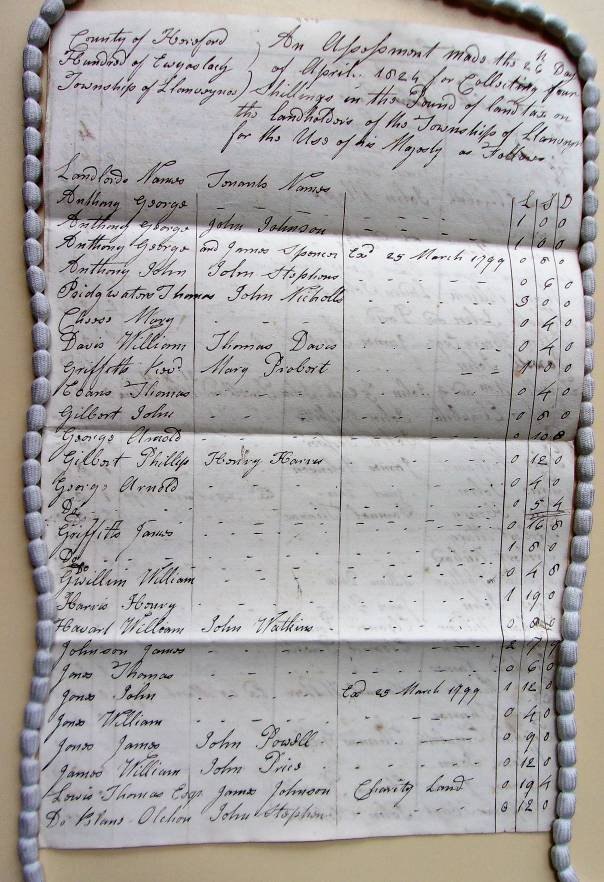 County of Hereford
Hundred of Ewyaslacy
Township of Llanveynoe
An Assessment made the 26th Day
of April 1824 for Collecting four
Shillings in the Pound of land tax on
the Landholders of the Township of
for the Use of his Majesty as Follows
Landlords Names Tenants Names £ S D
Anthony George 1 0 0
Anthony George John Johnson 1 0 0
Anthony George and James Spencer Exd 25 March 1799 0 8 0
Anthony John John Stephens 0 6 0
Bridgwaters Thomas John Nicholls 3 0 0
Cheese Mary 0 4 0
Davis William Thomas Davis 0 4 0
Griffiths Revd Mary Probert 1 0 0
Evans Thomas 0 4 0
Gilbert John 0 8 0
George Arnold 0 10 8
Gilbert Phillip Henry Harris 0 12 0
George Arnold 0 4 0
Do 0 5 4
Griffiths James 0 16 8
Do 1 8 0
Do
Gwillim William 0 4 8
Harris Henry 1 19 0
Havart William John Watkins 0 8 0
Johnson James 2 7
Jones Thomas 0 6 0
Jones John Exd 25 March 1799 1 12 0
Jones William 0 4 0
Jones James John Powell 0 9 0
James William John Price 0 12 0
Lewis Thomas Esqr James Johnson Charity Land 0 19 4
Do Olchon John Stephen 3 12 0